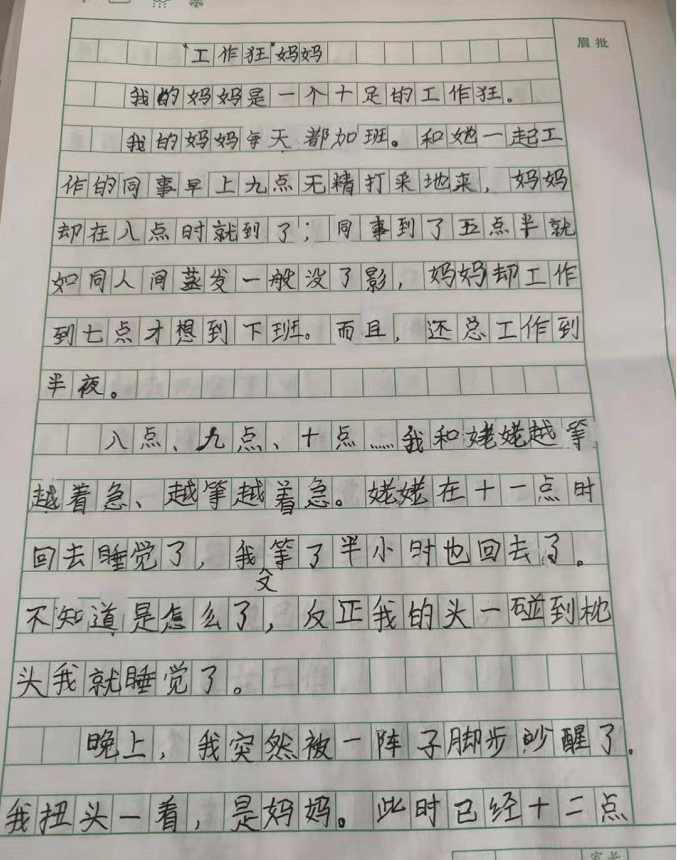 眉批
"工作狂"妈妈
我的妈妈是一个十足的工作狂。
我的妈妈每天都加班。和她一起工
作的同事早上九点无精打采地来，妈妈
却在八点时就到了；同事到了五点半就
如同人间蒸发一般没了影，妈妈却工作
到七点才想到下班。而且，还总工作到
半夜。
八点、九点、十点……我和姥姥越等
越着急、越等越着急。姥姥在十一点时
回去睡觉了，我又等了半小时也回去了。
不知道是怎么了，反正我的头一碰到枕
头我就睡觉了。
晚上，我突然被一阵子脚步吵醒了。
我扭头一看，是妈妈。此时已经十二点